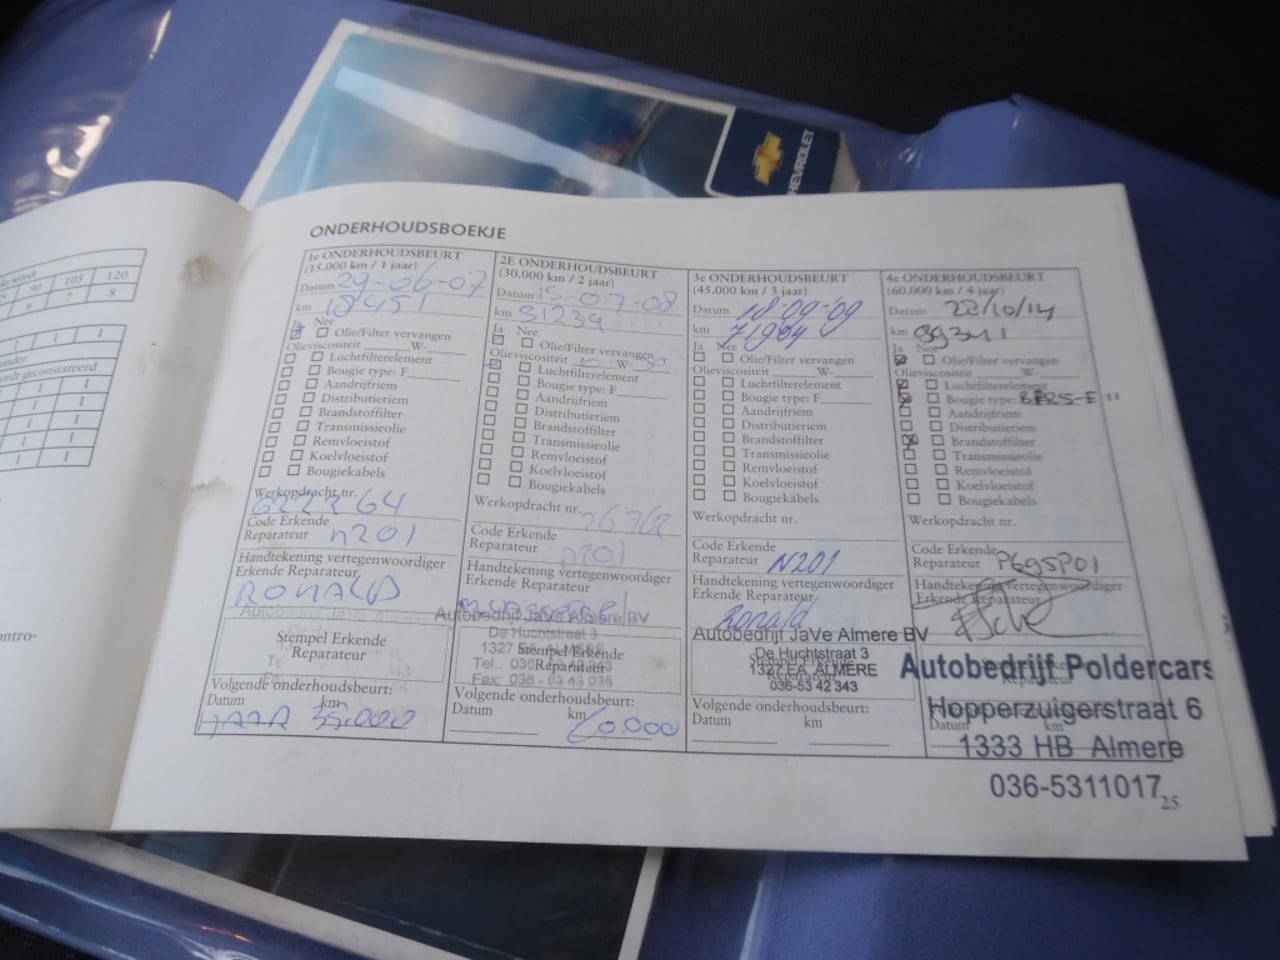 CHEVROLET
ke wordt
90 105 120
6 7 8
1 1 1
onder
ordt geconstateerd
1 1
1 1
1 1
1 1
1 1
1 1
ontro-
ONDERHOUDSBOEKJE
1e ONDERHOUDSBEURT
(15.000 km / 1 jaar)
Datum 29-06-07
km 18451
Ja Nee
Olie/Filter vervangen
Olieviscositeit W-
Luchtfilterelement
Bougie type: F
Aandrijfriem
Distributieriem
Brandstoffilter
Transmissieolie
Remvloeistof
Koelvloeistof
Bougiekabels
Werkopdracht nr.
622264
Code Erkende
Reparateur n201
Handtekening vertegenwoordiger
Erkende Reparateur
RONALD
Autobedrijf JaVe Almere
Stempel Erkende
Reparateur
Volgende onderhoudsbeurt:
Datum km
35.000
2E ONDERHOUDSBEURT
(30.000 km / 2 jaar)
Datum 15-07-08
km 31234
Ja Nee
Olie/Filter vervangen
Olieviscositeit W-
Luchtfilterelement
Bougie type: F
Aandrijfriem
Distributieriem
Brandstoffilter
Transmissieolie
Remvloeistof
Koelvloeistof
Bougiekabels
Werkopdracht nr.
26762
Code Erkende
Reparateur n201
Handtekening vertegenwoordiger
Erkende Reparateur
Autobedrijf JaVe Almere BV
De Huchtstraat 3
1327 EA ALMERE
Stempel Erkende
Reparateur
Tel.. 036 - 53 42 343
Fax: 036 - 53 43 036
Volgende onderhoudsbeurt:
Datum km
60.000
3e ONDERHOUDSBEURT
(45.000 km / 3 jaar)
Datum 18-09-'09
km 71904
Ja Nee
Olie/Filter vervangen
Olieviscositeit W-
Luchtfilterelement
Bougie type: F
Aandrijfriem
Distributieriem
Brandstoffilter
Transmissieolie
Remvloeistof
Koelvloeistof
Bougiekabels
Werkopdracht nr.
Code Erkende
Reparateur N201
Handtekening vertegenwoordiger
Erkende Reparateur
Ronald
Autobedrijf JaVe Almere BV
De Huchtstraat 3
1327 EA ALMERE
036-53 42 343
Volgende onderhoudsbeurt:
Datum km
4e ONDERHOUDSBEURT
(60.000 km / 4 jaar)
Datum 22/10/14
km 99341
Ja Nee
Olie/Filter vervangen
Olieviscositeit W-
Luchtfilterelement
Bougie type:
Aandrijfriem
Distributieriem
Brandstoffilter
Transmissieolie
Remvloeistof
Koelvloeistof
Bougiekabels
Werkopdracht nr.
Code Erkende
Reparateur P695P01
Handtekening vertegenwoordiger
Erkende Reparateur
Autobedrijf Poldercars
Hopperzuigerstraat 6
Datum km
1333 HB Almere
036-5311017
25